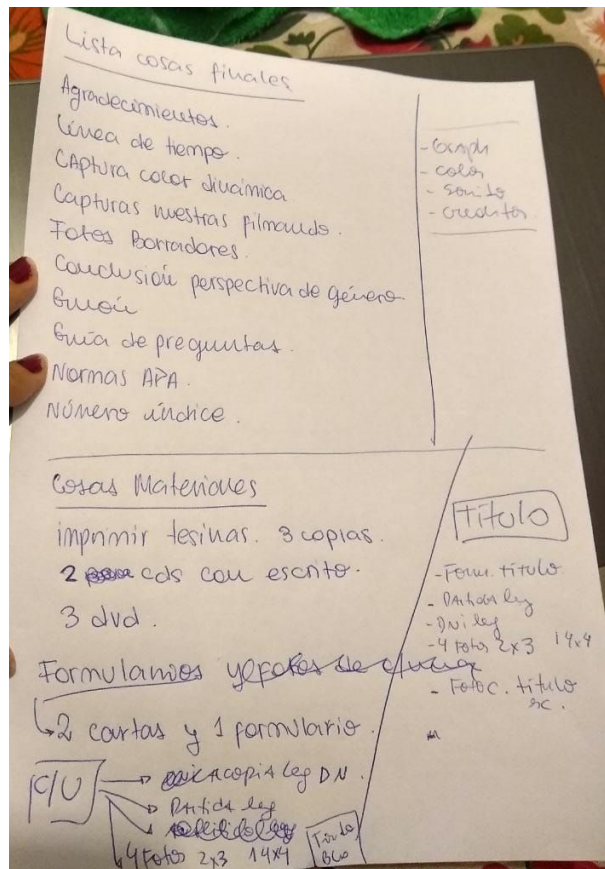 Lista cosas finales
Agradecimientos.
Línea de tiempo.
CAptura color dinámica
Capturas nuestras filmando.
Fotos Borradores.
Conclusión perspectiva de género
Guión
Guía de preguntas.
Normas APA.
Número índice.
- Graph
- color
- Sonido
- creditos
Cosas Materiales
imprimir tesinas. 3 copias.
2 cds con escrito.
3 dvd.
Formularios
2 cartas y 1 formulario.
C/U
copia leg DN.
Partida leg
4 Fotos 2x3 1 4x4
Título
- Form. título
- Partida leg
- DNi leg
- 4 fotos 2x3 1 4x4
- Fotoc. título
sc.